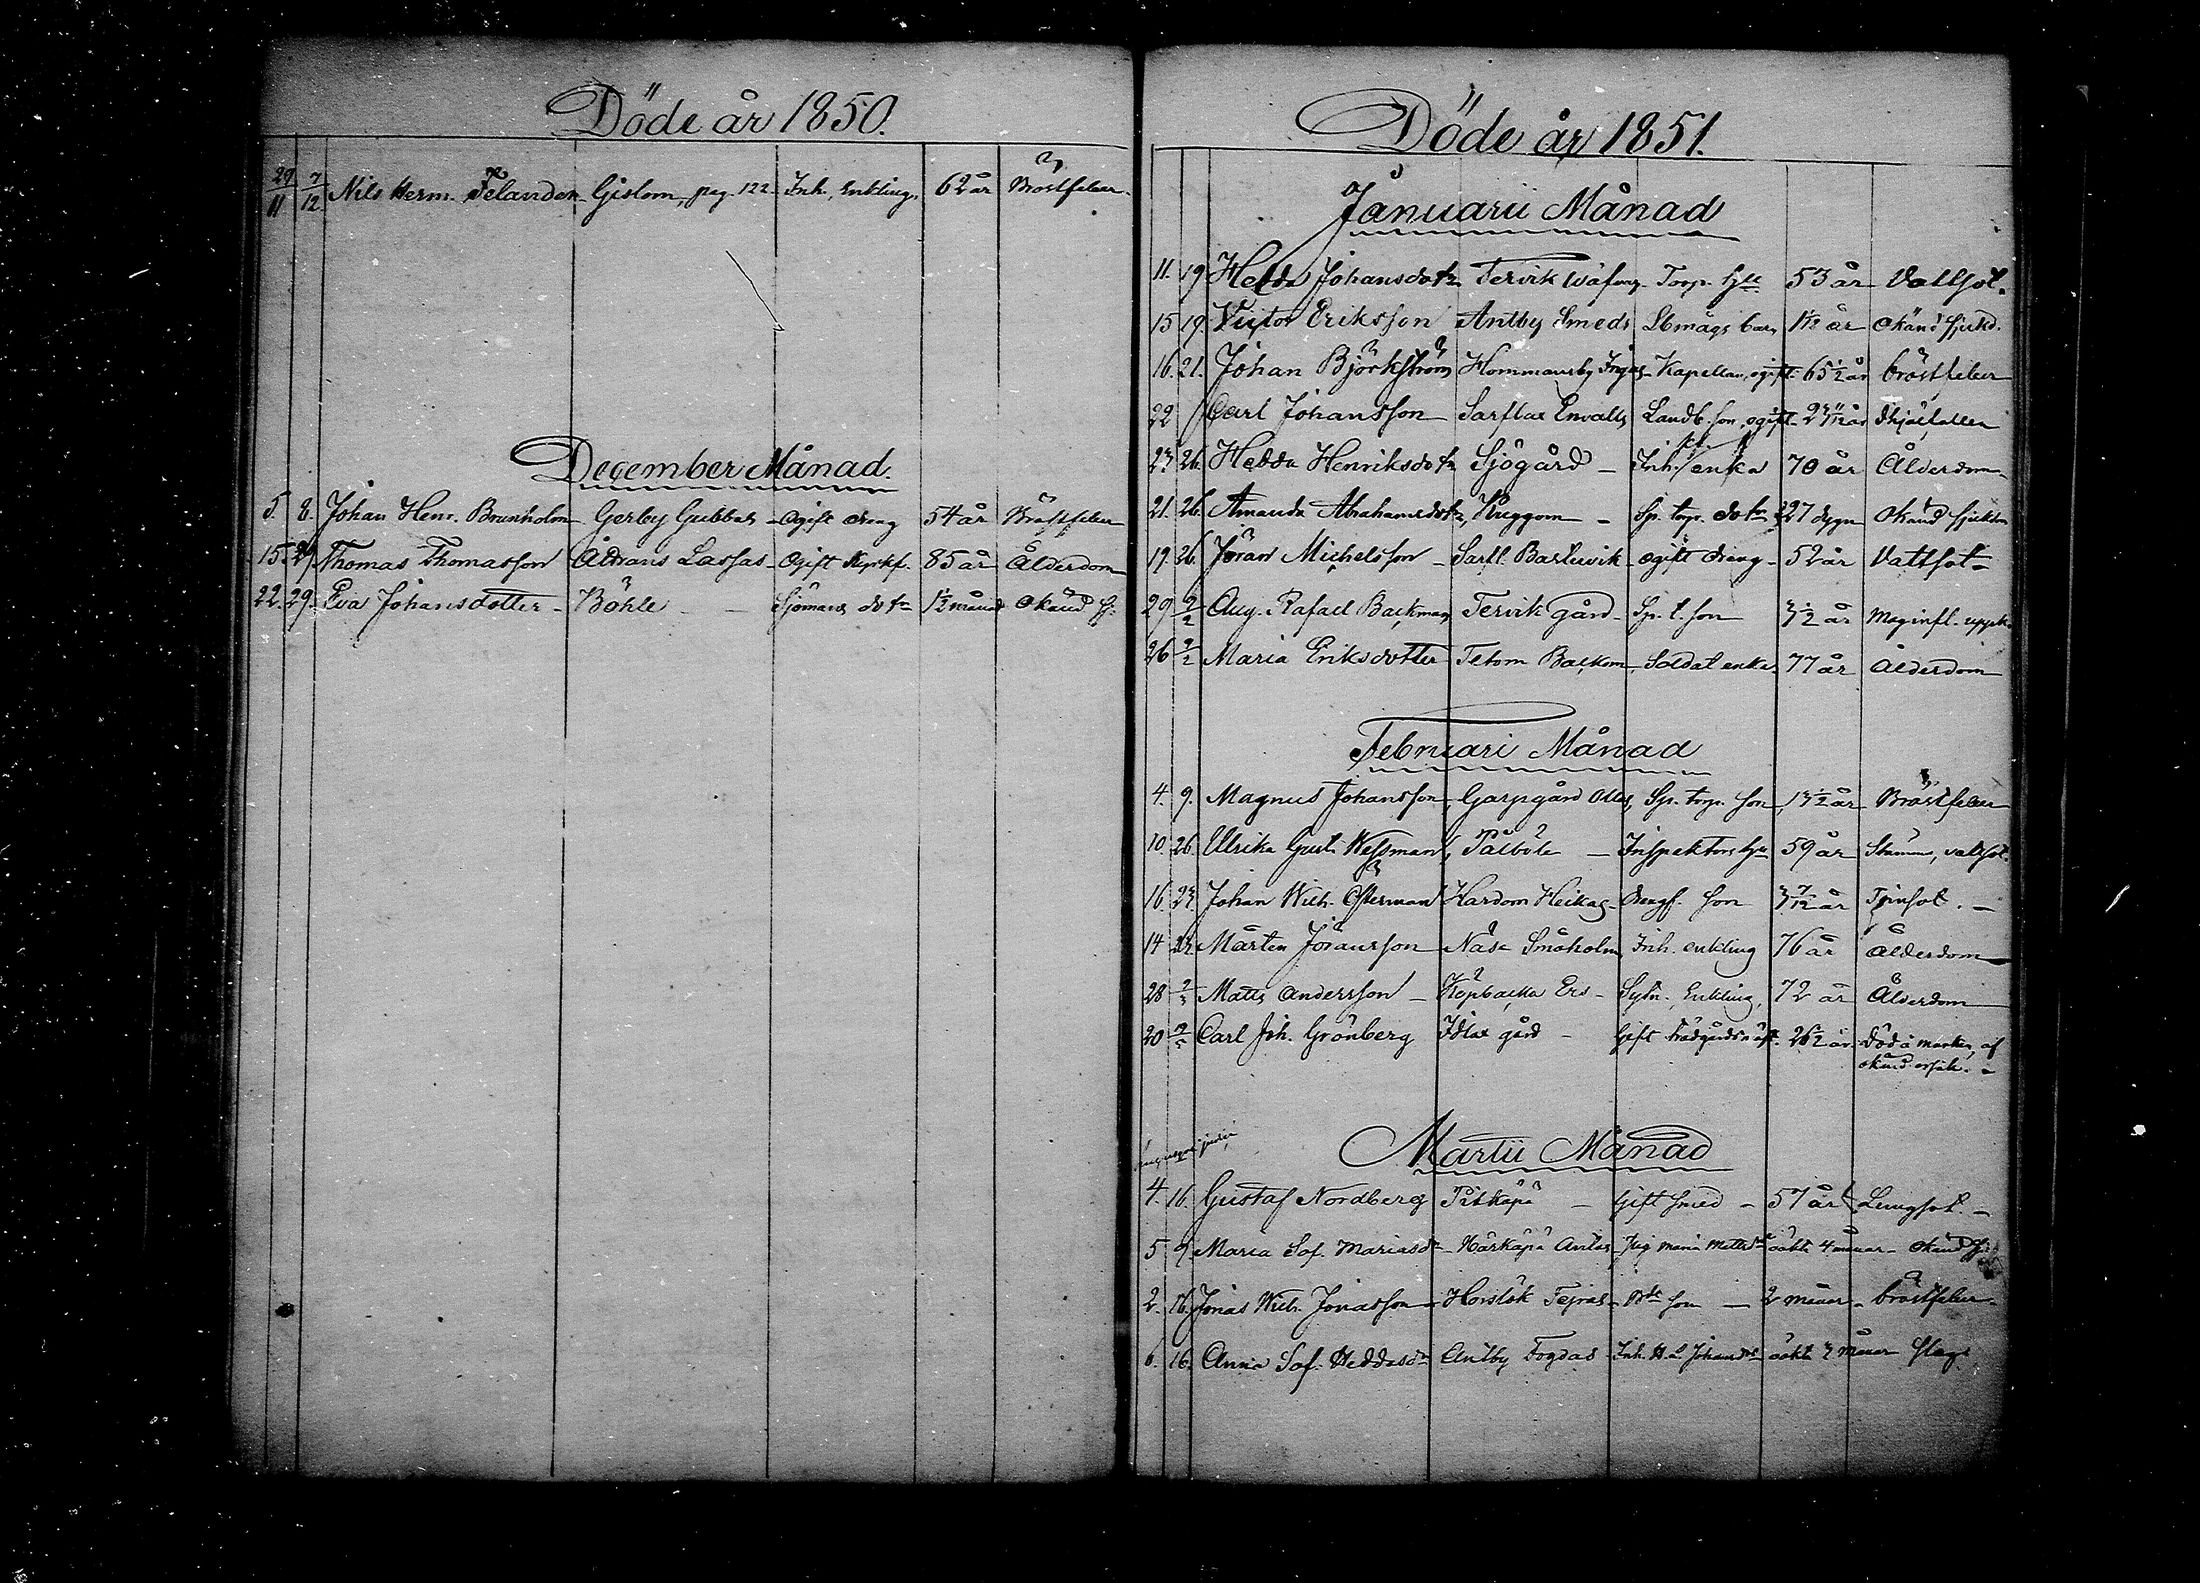 Döde år 1850.
29/11 7/12 Nils Herm. Felander Gislom, pag. 122. Inh. Enkling, 62 år Bröstfeber.
December Månad.
5. 8. Johan Henr. Brunholm Gerby Gubbas Ogift dreng 54 år Bröstfeber
15. 29 Thomas Thomasson Aldrans Lassas Ogift Kyrkf. 85 år Ålderdom
22. 29. Eva Johansdotter Böhle Sjömans dotr 1 1/2 månad Okänd sj:
Döde år 1851.
Januarii Månad
11. 19 Hedda Johansdotr Tervik Torp. hu 53 år Vattsot.
15 19 Victor Eriksson Antby Smeds Lbmågs barn 1 1/2 år Okänd sjukd.
16. 21. Johan Björkström Hommansby Kapellan, ogift 65 1/2 år bröstfeber
22 Carl Johansson Sarflax Envalls Landb. son, ogift 23 11/12 år ihjälfallen
23 26 Hedda Henriksdotr Sjögård Inh. enka 70 år Ålderdom
21. 26. Amanda Abrahamsdotr, Kuggom Sp. torp. dotr 27 dygn Okänd sjukdom
19. 26. Jöran Michelsson Sarfl. Barlusvik ogift dreng 52 år Vattsot
29 2/2 Aug. Rafael Backman Tervik gård Sp. t. son 3 1/2 år Mag infl.
26 2/2 Maria Eriksdotter Tetom Backom Soldat enka 77 år Ålderdom
Februari Månad
4. 9. Magnus Johansson, Garpgård Olles, Sp. torp. son 13 1/2 år Bröstfeber
10. 26 Ulrika Gust. Wessman, Påtböle Inspektors hu 59 år vattsot.
16. 23. Johan Wilh. Österman Hardom Heikas drengs son 3 7/12 år Tvinsot.
14 23. Mårten Jöransson Näse Småholm Inh. enkling 76 år Ålderdom
28 2/3 Matts Andersson Köpbacka Ers Sytn. Enkling, 72 år Ålderdom
20 Carl Joh. Grönberg Idlax gård Gift trädgårdsmäst. 26 1/2 år. Död å marken, af
okänd orsak.
Martii Månad
4. 16. Gustaf Nordberg Pitkäpä Gift smed 57 år Lungsot.
5 9 Maria Sof. Mariasdr Härkäpä Antas Pig. Maria Mattsdr oäkt. 4 månar Okänd sj:
2. 16. Jonas Wilh. Jonasson Horslök Tejras Bde son 2 månar bröstfeber
6. 16. Anna Sof. Heddasdr Antby Fogdas Inh. Ha Johansdr oäkt 3 månar Slag.